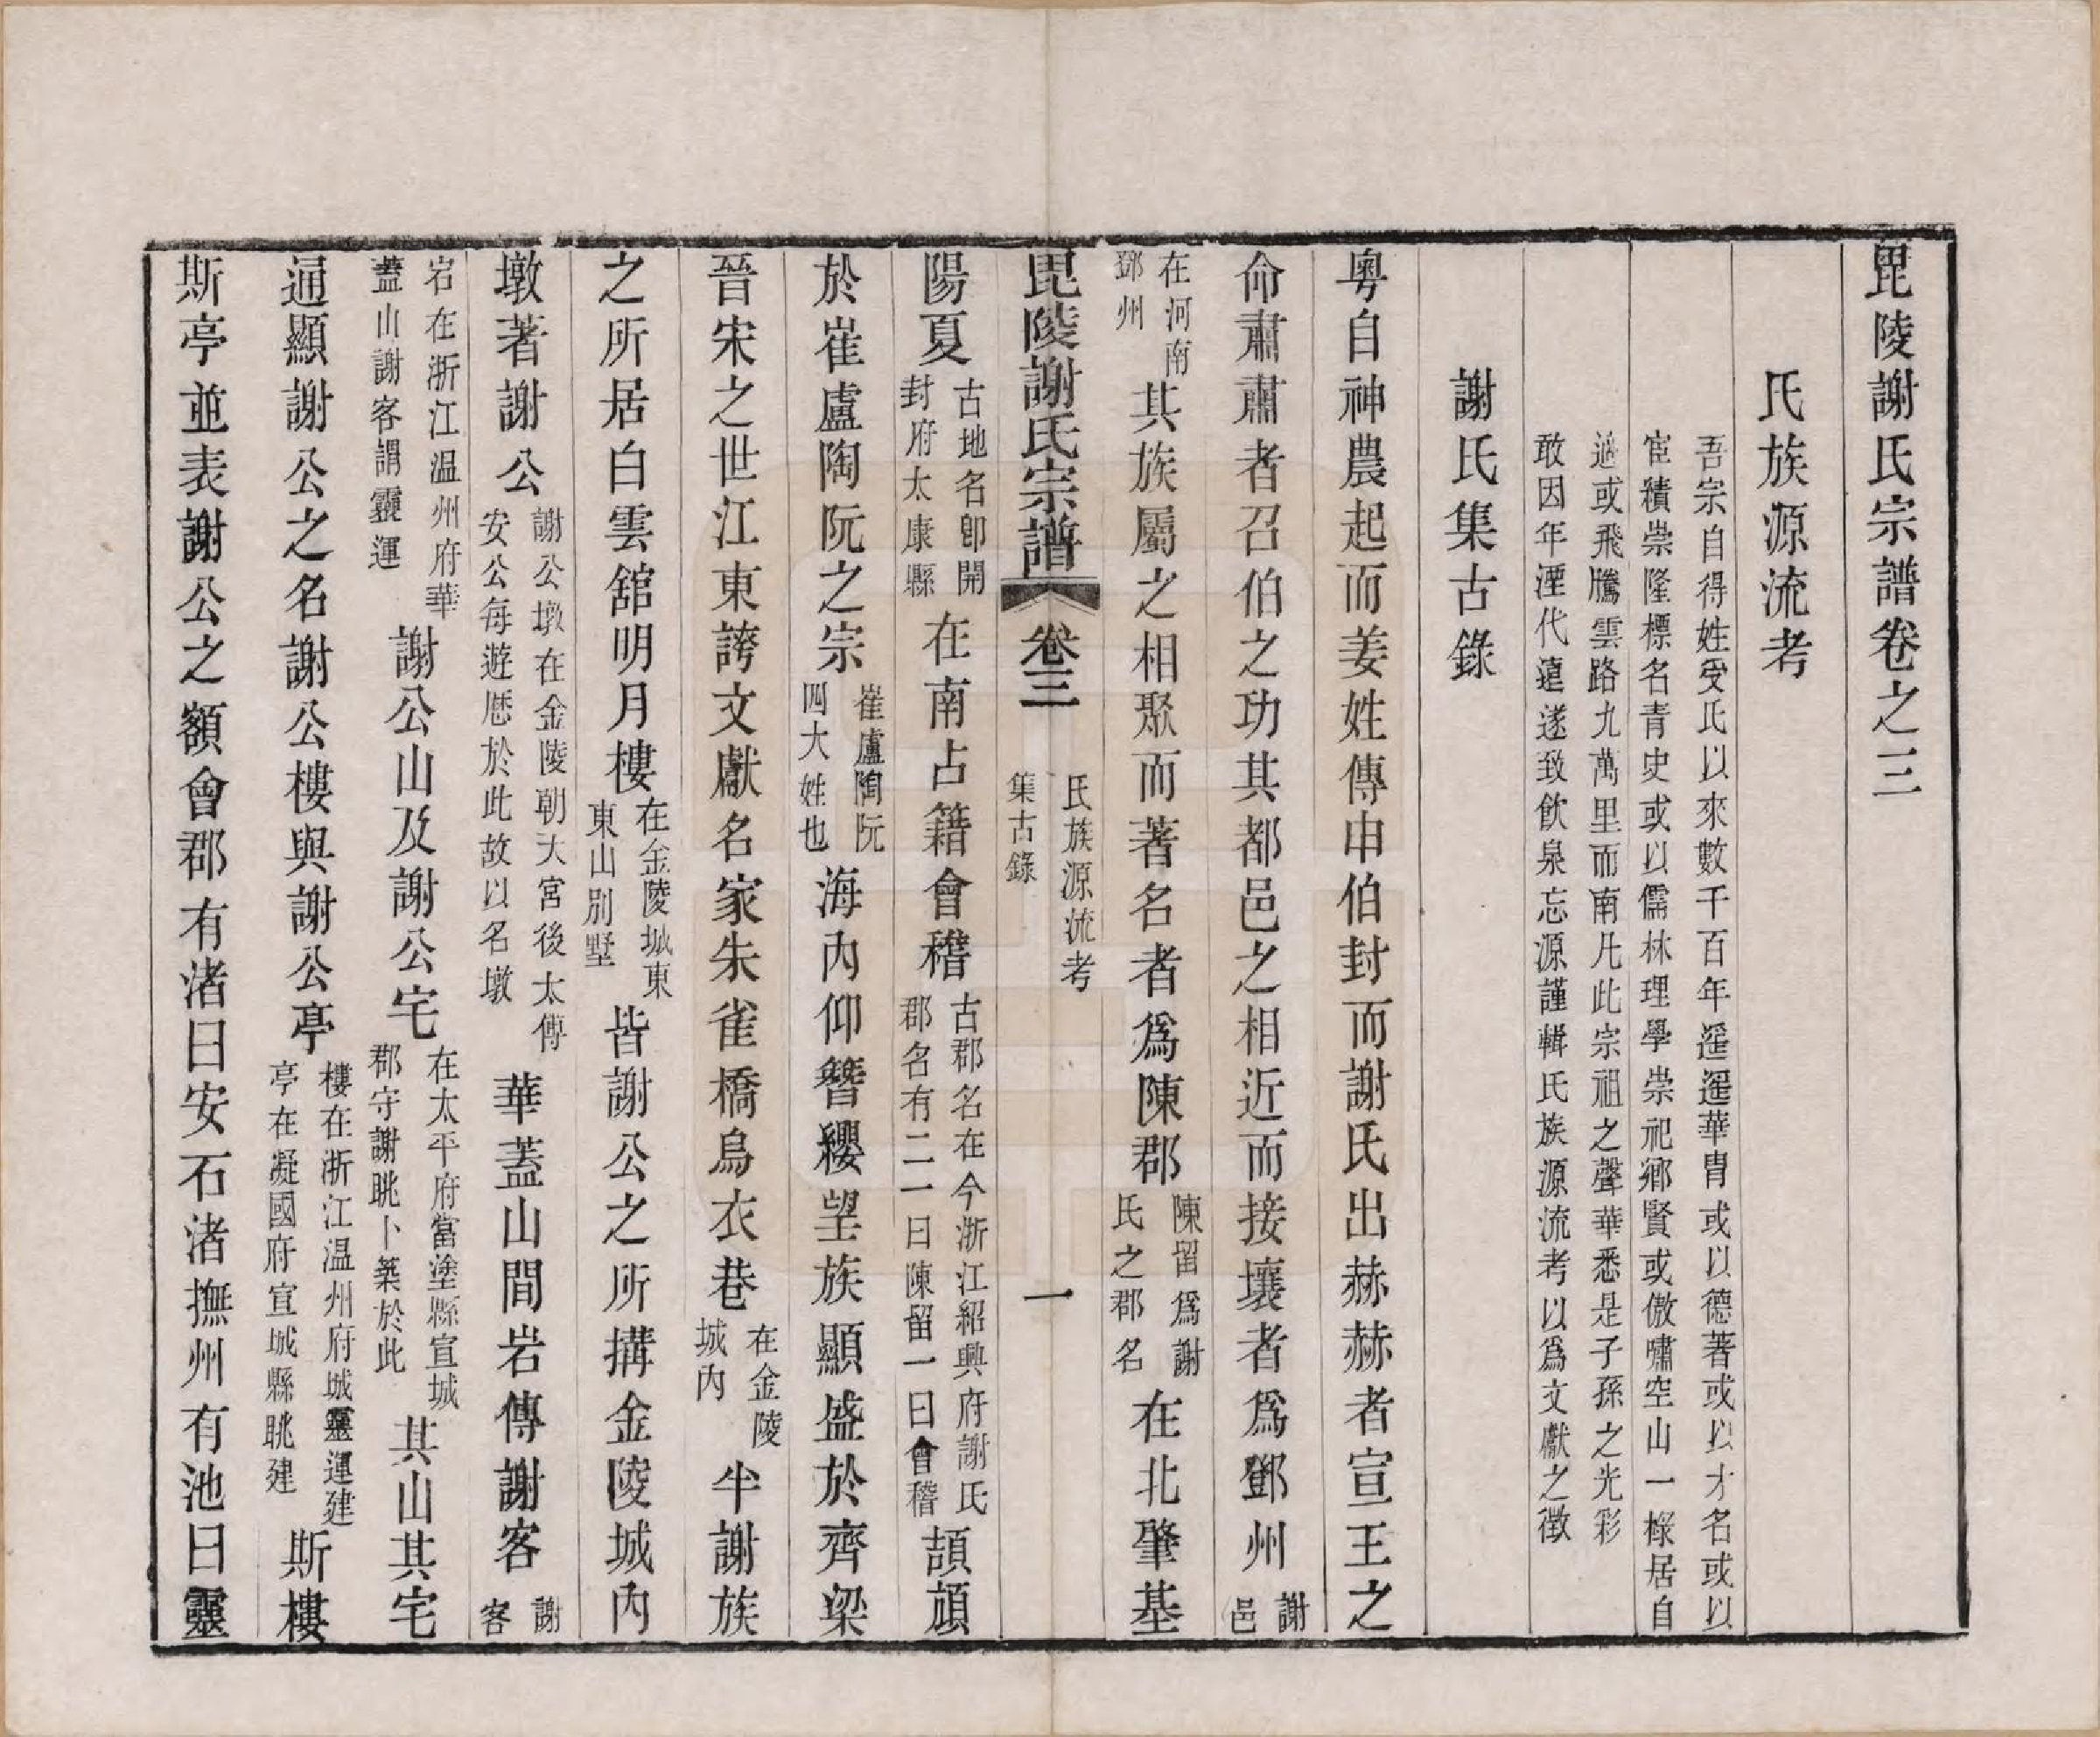 毘陵謝氏宗譜卷之三
氏族源流考
吾宗自得姓受氏以來數千百年遥遥華胄或以德著或以才名或以
宦績崇隆標名青史或以儒林理學崇祀鄉賢或傲嘯空山一椽居自
適或飛騰雲路九萬里而南凡此宗祖之聲華悉是子孫之光彩
敢因年湮代遠遂致飲泉忘源謹輯氏族源流考以爲文獻之徵
謝氏集古錄
粤自神農起而姜姓傳申伯封而謝氏出赫赫者宣王之
命肅肅者召伯之功其都邑之相近而接壤者爲鄧州謝邑
在河南鄧州其族屬之相聚而著名者爲陳郡陳留爲謝氏之郡名在北肇基
毘陵謝氏宗譜 卷三 氏族源流考 集古錄 一
陽夏古地名卽開封府太康縣在南占籍會稽古郡名在今浙江紹興府謝氏郡名有二一曰陳留一曰會稽頡頏
於崔盧陶阮之宗崔盧陶阮四大姓也海內仰簪纓望族顯盛於齊梁
晉宋之世江東誇文獻名家朱雀橋烏衣巷在金陵城內半謝族
之所居白雲舘明月樓在金陵城東東山別墅皆謝公之所搆金陵城內
墩著謝公謝公墩在金陵朝天宮後太傅安公每遊歷於此故以名墩華蓋山間岩傳謝客謝客
岩在浙江温州府華蓋山謝客謂靈運謝公山及謝公宅在太平府當塗縣宣城郡守謝朓卜築於此其山其宅
通顯謝公之名謝公樓與謝公亭樓在浙江温州府城靈運建亭在凝國府宣城縣朓建斯樓
斯亭並表謝公之額會郡有渚曰安石渚撫州有池曰靈